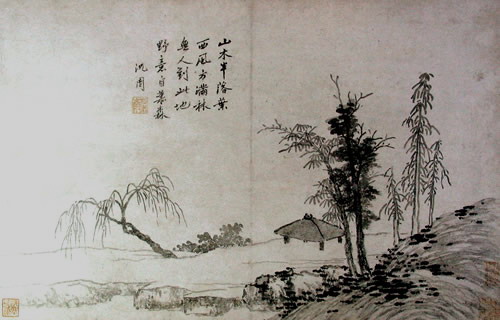 山木半落葉
西風方滿林
無人到此地
野意自蕭森
沈周